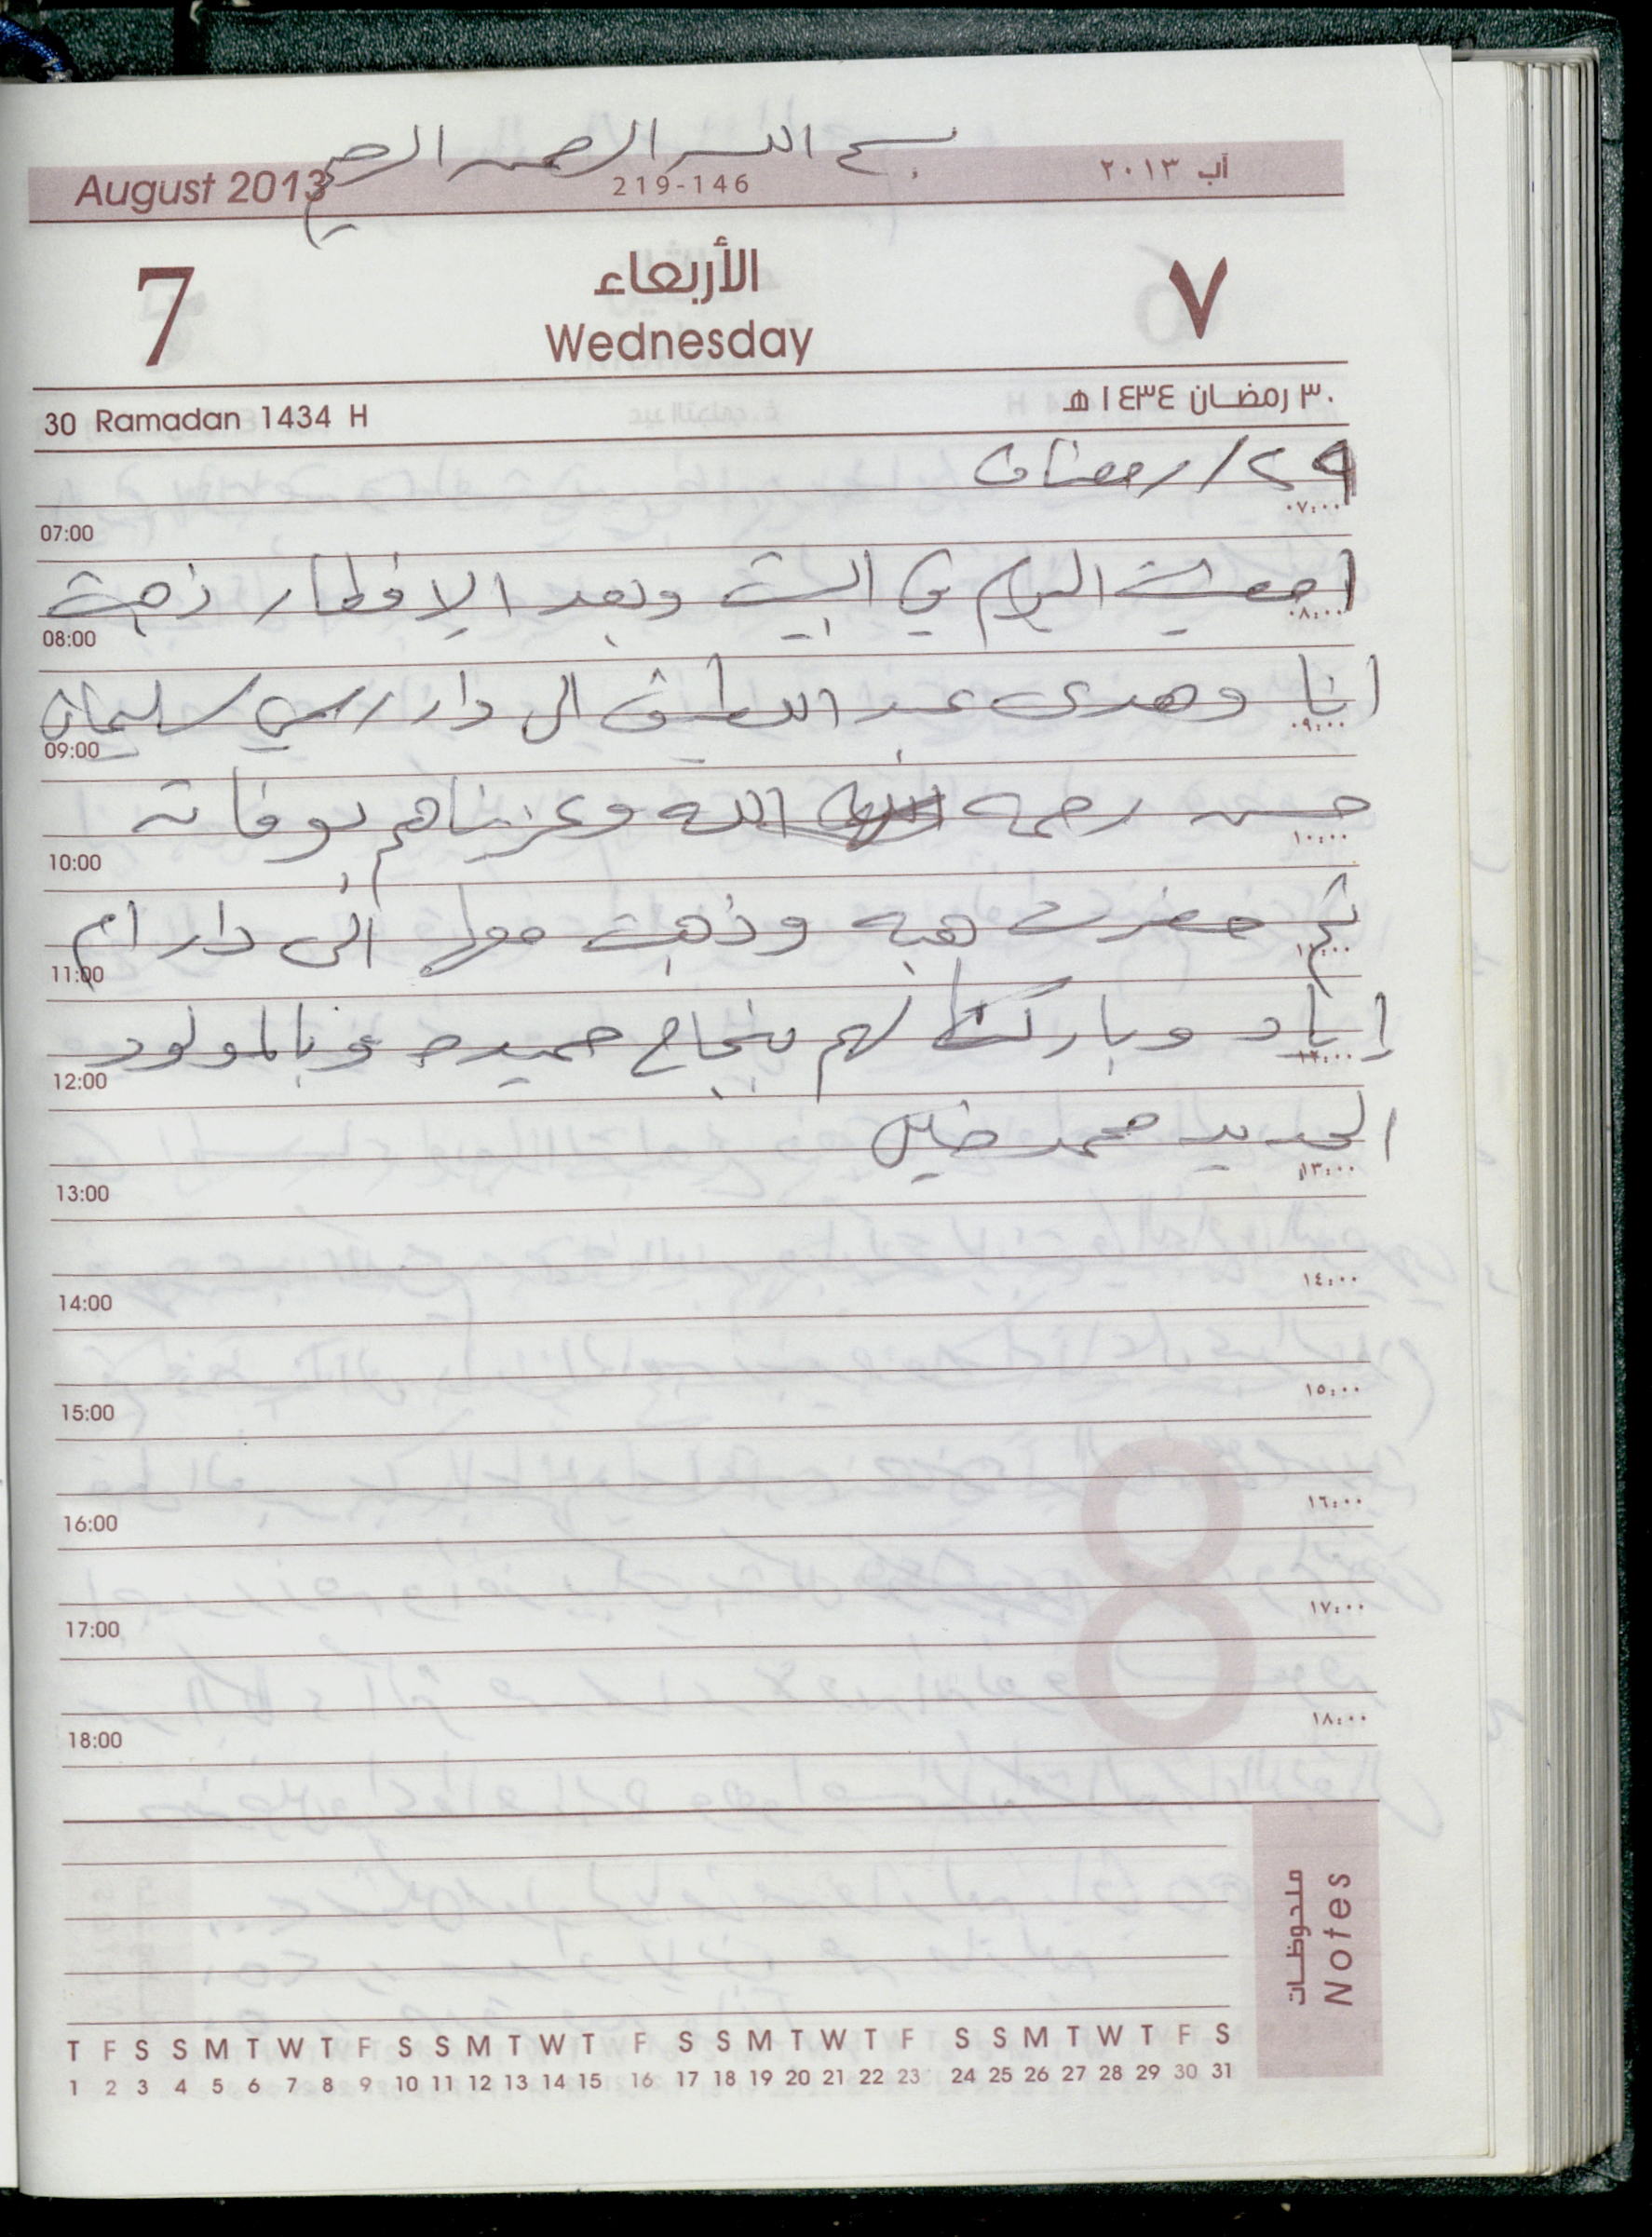 بسم الله الرحمن الرحيم
August 2013 219-146 آب ٢٠١٣
7 الأربعاء ٧
Wednesday
30 Ramadan 1434 H ٣٠ رمضان ١٤٣٤ هـ
٢٩/ رمضان
07:00 ٠٧:٠٠
امضيت اليوم في البيت وبعد الإفطار ذهبت
08:00 ٠٨:٠٠
انا وهدى عبد اللطيف الى دار سليمان
09:00 ٠٩:٠٠
حسن رحمه الله وعزيناهم بوفاته
10:00 ١٠:٠٠
ثم حضرت هبه وذهبت معها الى دار ام
11:00 ١١:٠٠
إياد وباركنا لهم بنجاح حميده وبالمولود
12:00 ١٢:٠٠
الجديد محمد
13:00 ١٣:٠٠
14:00 ١٤:٠٠
15:00 ١٥:٠٠
16:00 ١٦:٠٠
17:00 ١٧:٠٠
18:00 ١٨:٠٠
ملحوظات
Notes
T F S S M T W T F S S M T W T F S S M T W T F S S M T W T F S
1 2 3 4 5 6 7 8 9 10 11 12 13 14 15 16 17 18 19 20 21 22 23 24 25 26 27 28 29 30 31